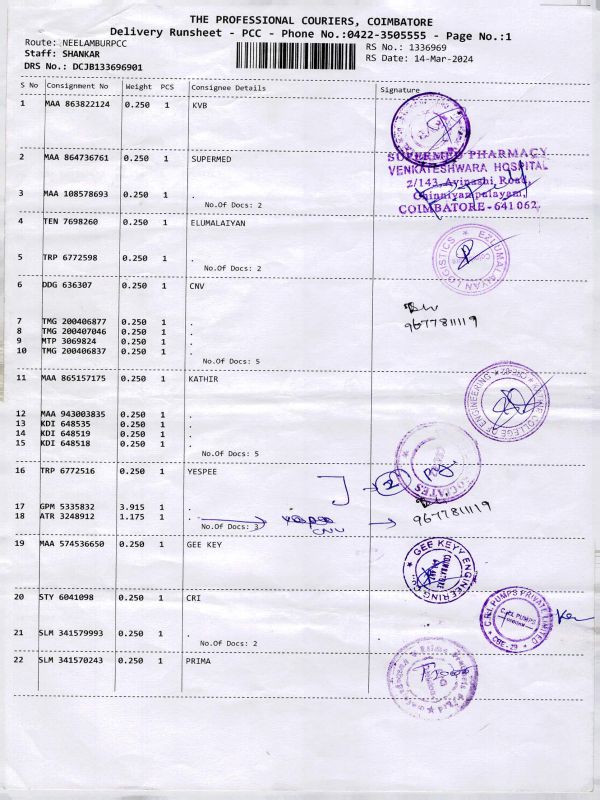 THE PROFESSIONAL COURIERS, COIMBATORE
Delivery Runsheet - PCC - Phone No.:0422-3505555 - Page No.:1
Route: NEELAMBURPCC
RS No.: 1336969
Staff: SHANKAR
RS Date: 14-Mar-2024
DRS No.: DCJB133696901
S No Consignment No Weight PCS Consignee Details Signature
1 MAA 863822124 0.250 1 KVB
2 MAA 864736761 0.250 1 SUPERMED
SUPERMED PHARMACY
VENKATESHWARA HOSPITAL
2/143, Avinashi Road,
Chinniyampalayam,
COIMBATORE - 641 062.
3 MAA 108578693 0.250 1 .
No.Of Docs: 2
4 TEN 7698260 0.250 1 ELUMALAIYAN
5 TRP 6772598 0.250 1 .
No.Of Docs: 2
6 DDG 636307 0.250 1 CNV
9677811119
7 TMG 200406877 0.250 1 .
8 TMG 200407046 0.250 1 .
9 MTP 3069824 0.250 1 .
10 TMG 200406837 0.250 1 .
No.Of Docs: 5
11 MAA 865157175 0.250 1 KATHIR
12 MAA 943003835 0.250 1 .
13 KDI 648535 0.250 1 .
14 KDI 648519 0.250 1 .
15 KDI 648518 0.250 1 .
No.Of Docs: 5
16 TRP 6772516 0.250 1 YESPEE
2
17 GPM 5335832 3.915 1 .
9677811119
18 ATR 3248912 1.175 1 .
No.Of Docs: 3
CNV
19 MAA 574536650 0.250 1 GEE KEY
GEE KEYY ENGINEERING
20 STY 6041098 0.250 1 CRI
C.R.I. PUMPS PRIVATE LIMITED
21 SLM 341579993 0.250 1 .
No.Of Docs: 2
22 SLM 341570243 0.250 1 PRIMA